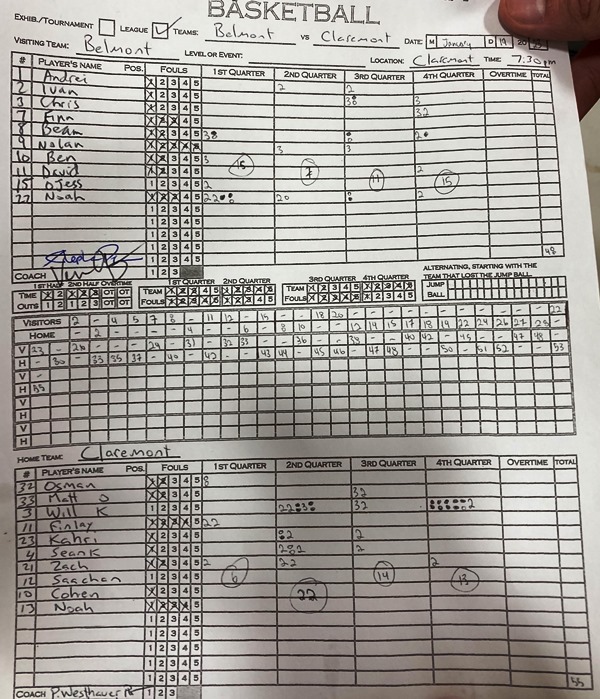 BASKETBALL
EXHIB./TOURNAMENT LEAGUE TEAMS: Belmont VS Claremont DATE: M January D 19 20
VISITING TEAM: Belmont LEVEL OR EVENT: LOCATION: Claremont TIME 7:30pm
# PLAYER'S NAME POS. FOULS 1ST QUARTER 2ND QUARTER 3RD QUARTER 4TH QUARTER OVERTIME TOTAL
1 Andrei 1 2 3 4 5
2 Ivan 1 2 3 4 5 2 2
3 Chris 1 2 3 4 5 3 3
7 Finn 1 2 3 4 5 32
8 Beam 1 2 3 4 5 3 2
9 Nolan 3 3
10 Ben 1 2 3 4 5 3 15 7 11 15
11 David 1 2 3 4 5 2
15 DJess 1 2 3 4 5 2
22 Noah 1 2 3 4 5 22 20 2
1 2 3 4 5
1 2 3 4 5
1 2 3 4 5
1 2 3 4 5 48
COACH 1 2 3
1ST HALF 2ND HALF OVERTIME 1ST QUARTER 2ND QUARTER 3RD QUARTER 4TH QUARTER ALTERNATING, STARTING WITH THE TEAM THAT LOST THE JUMP BALL
TIME OUTS TEAM FOULS TEAM FOULS JUMP BALL
VISITORS 2 - 4 5 7 8 - 11 12 - 15 - - 18 20 - - - - - - - - - - - 22
HOME - 2 - - - - 4 - - 6 - 8 10 - - 12 14 15 17 18 19 22 24 26 27 28 -
V 23 - 26 - - 29 - 31 - 32 33 - - 36 - - 38 - - 40 42 - 45 - - 47 48 - -
H - 30 - 33 35 37 - 40 - 42 - - 43 44 - 45 46 - 47 48 - - 50 - 51 52 - - 53
V -
H 55
V
H
V
H
HOME TEAM: Claremont
# PLAYER'S NAME POS. FOULS 1ST QUARTER 2ND QUARTER 3RD QUARTER 4TH QUARTER OVERTIME TOTAL
32 Osman
33 Matt O 32
3 Will K 32 2
11 Finlay 22
23 Kahri 2 2
4 Sean K 2 2 2
21 Zach 2 22 2
12 Saachan 1 2 3 4 5 6 14 13
10 Cohen 22
13 Noah
1 2 3 4 5
1 2 3 4 5
1 2 3 4 5
1 2 3 4 5 55
COACH P. Westhaver 1 2 3